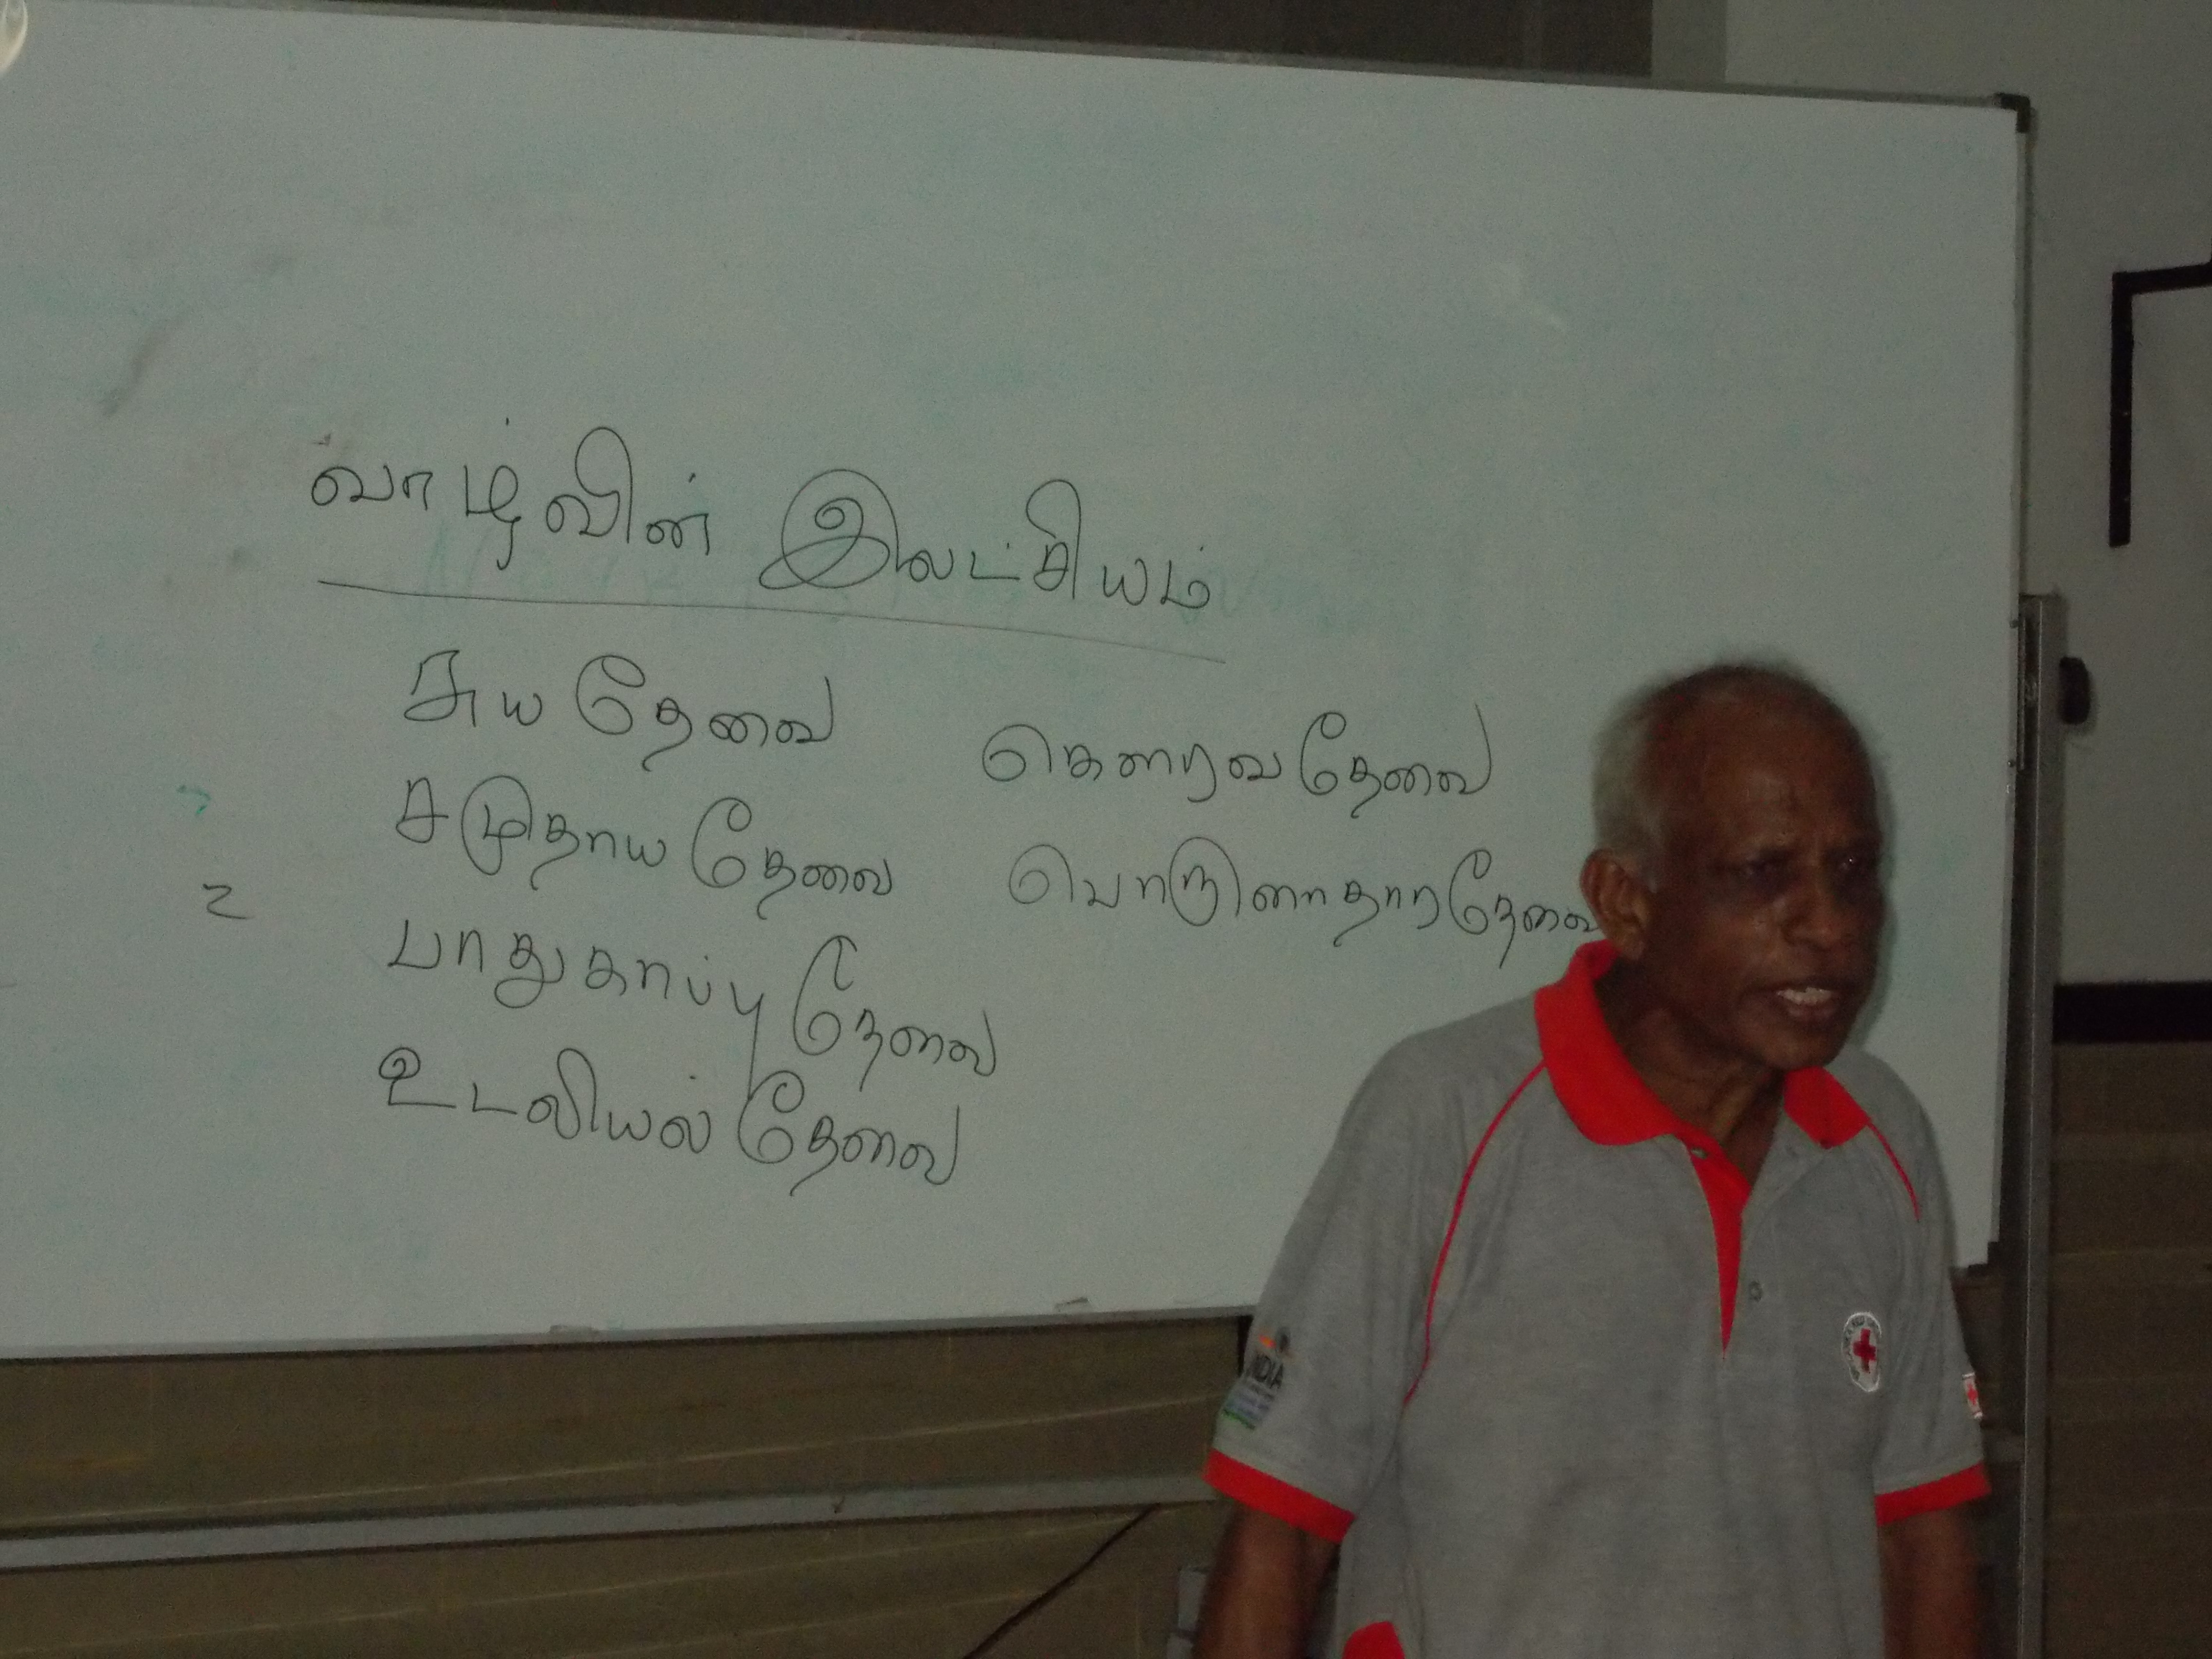 வாழ்வின் இலட்சியம்
சுய தேவை கௌரவ தேவை
சமுதாய தேவை பொருளாதார தேவை
பாதுகாப்பு தேவை
உடலியல் தேவை
INDIA